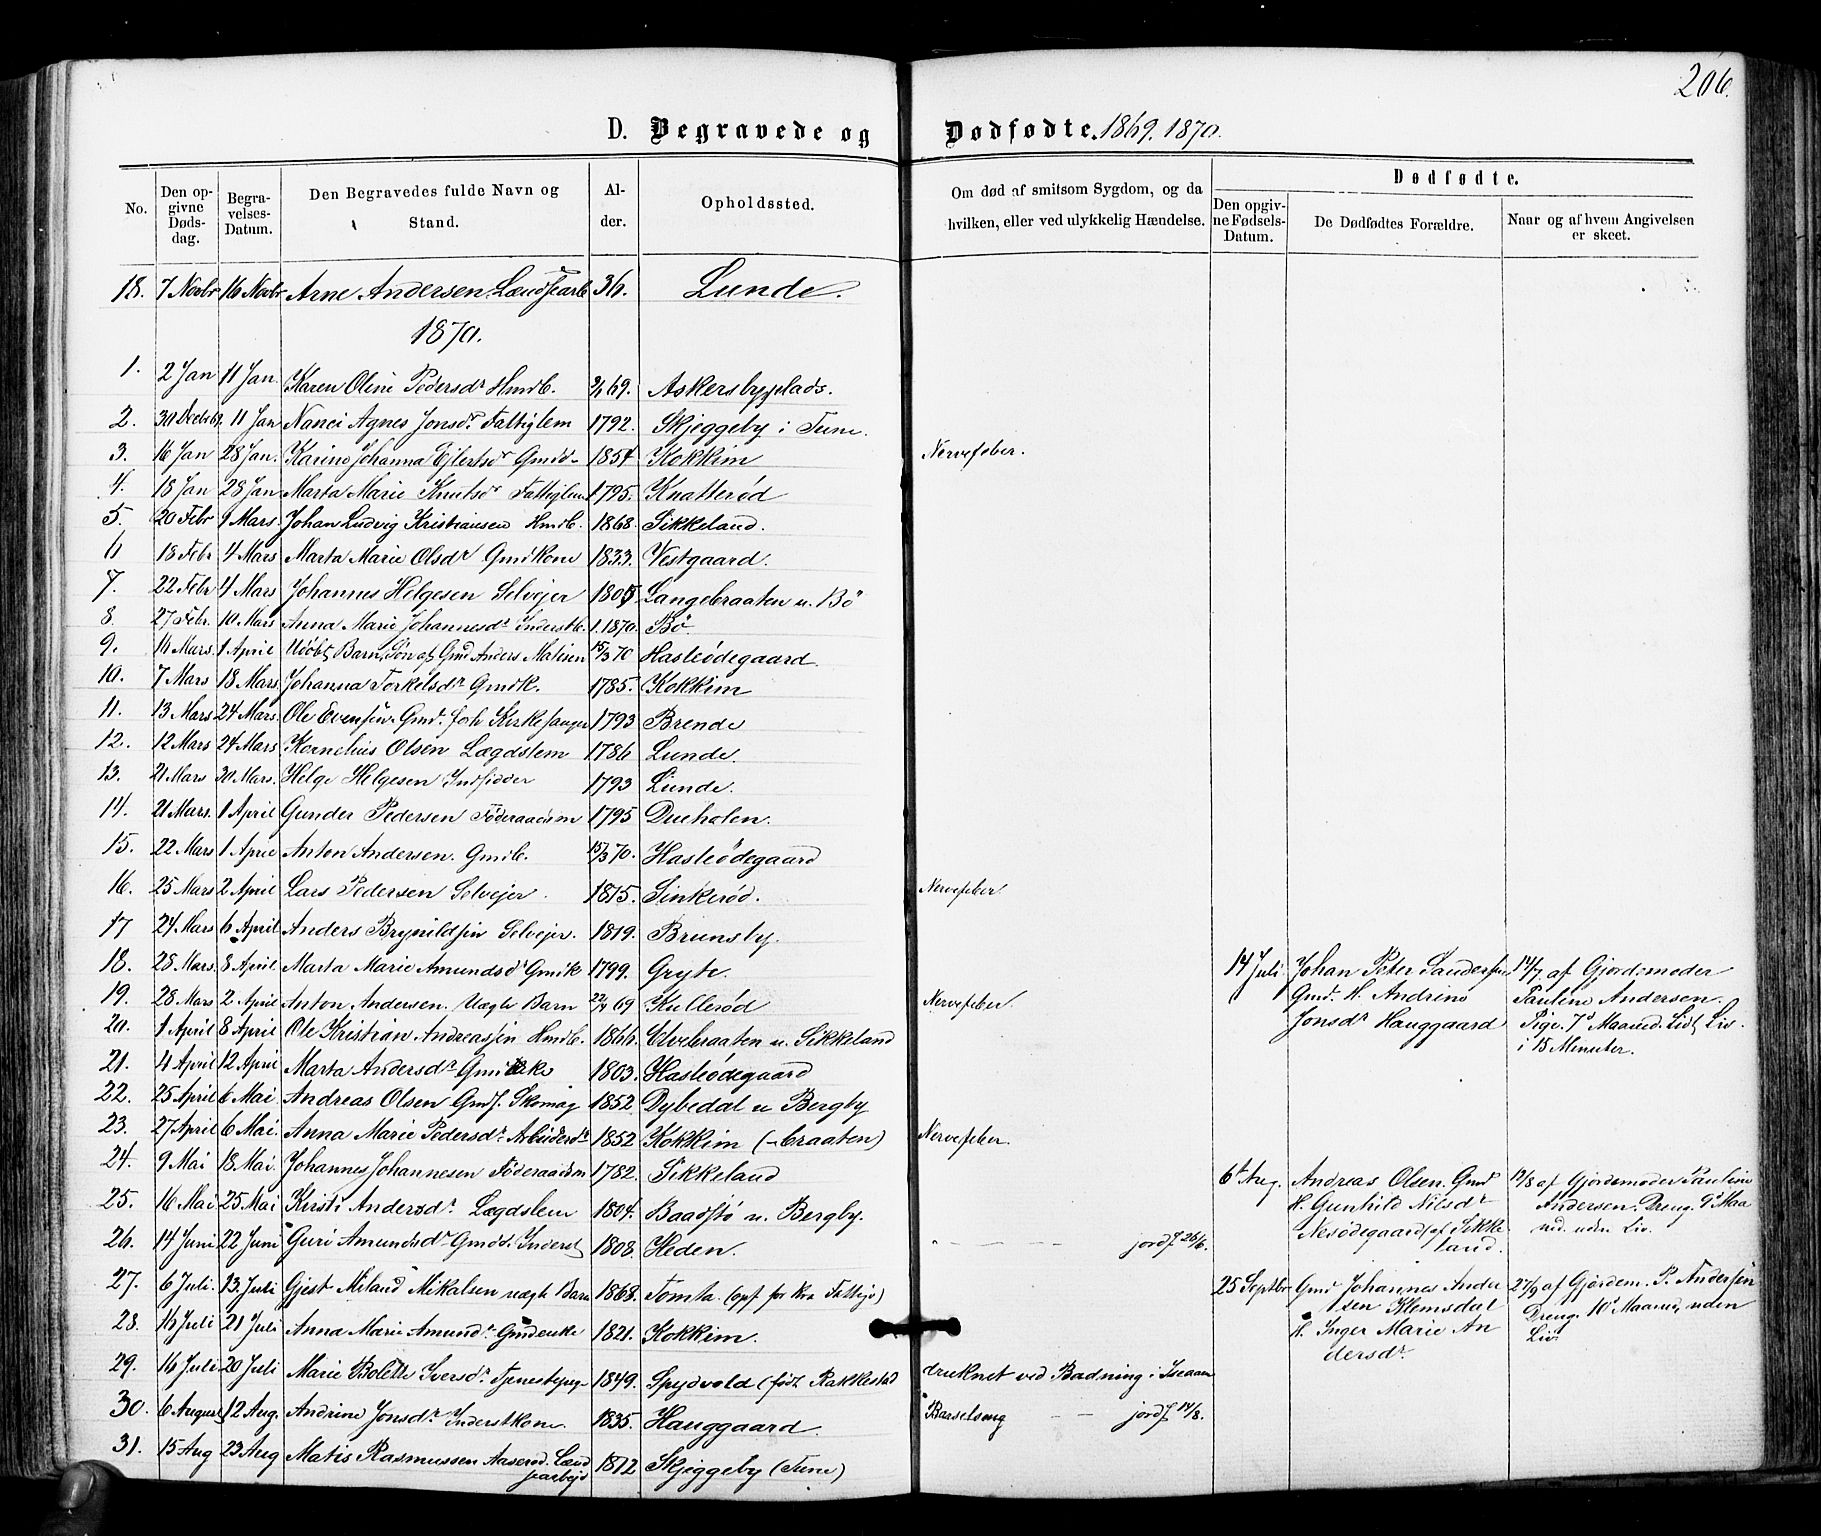 206.
D. Begravede og Dødfødte. 1869. 1870.
No.
Den opgivne Dødsdag.
Begravelses-Datum.
Den Begravedes fulde Navn og Stand.
Alder.
Opholdssted.
Om død af smitsom Sygdom, og da hvilken, eller ved ulykkelig Hændelse.
Dødfødte.
Den opgivne Fødsels-Datum.
De Dødfødtes Forældre.
Naar og af hvem Angivelsen er skeet.
18. 7 Novbr 16 Novbr Arne Andersen 36. Lunde.
1870.
1. 2 Jan 11 Jan. Karen Oline Pedersdr Hmdb. 69. Askersbyplads.
2. 30 Decbr 69. 11 Jan Nanci Agnes Jonsdr Fattiglem 1792. Skjeggeby i Tune.
3. 16 Jan 28 Jan. Karine Johanna Ejlertsdr Gmdd 1854 Kokkim Nervefeber.
4. 18 Jan 28 Jan Marta Marie Knutsdr Fattiglem 1795. Knatterød
5. 20 Febr 9 Mars. Johan Ludvig Kristiansen Hmdb. 1868. Sikkeland.
6 18 Febr 4 Mars Marta Marie Olsdr Gmdkone 1833. Vestgaard.
7. 22 Febr 4 Mars Johannes Helgesen Selvejer 1805 Langebraaten u. Bø
8. 27 Febr. 10 Mars Anna Marie Johannesdr Inderstb. 1.1870. Bø.
9. 16 Mars. 1 April Udøbt Barn, Søn af Gmd Anders Matisen 15/3 70 Hasleødegaard
10. 7 Mars 18 Mars. Johanna Torkelsdr Gmdk. 1785. Kokkim
11. 13 Mars 24 Mars. Ole Evensen Gmd. foh Kirkesanger 1793 Brende
12. 12 Mars 24 Mars Kornelius Olsen Lægdslem 1786 Lunde.
13. 21 Mars 30 Mars. Helge Helgesen Indsidder 1793 Lunde.
14. 21 Mars. 1 April Gunder Pedersen Føderaadsm 1795 Dueholen.
15. 22 Mars 1 Apri Anton Andersen. Gmdb. 15/3 70. Hasleødegaard
16. 25 Mars 2 April Lars Pedersen Selvejer. 1815. Sinkerød. Nervefeber
17 24 Mars 6 April Anders Brynildsen Selvejer. 1819. Brunsby.
18. 28 Mars. 8 April. Marta Marie Amundsdr Gmdk 1799. Gryte.
19. 28 Mars 2 April Anton Andersen. Uægte Barn 69 Kullerød Nervefeber.
20. 1 April 8 April Ole Kristian Andreassen Hmdb. 1866. Elvebraaten u. Sikkeland
21. 4 April 12 April Marta Andersdr Gmdenke 1803. Hasleødegaard
22. 25 April 6 Mai Andreas Olsen Gmds. Skomag 1852 Dybedal u Bergby
23. 27 April 6 Mai. Anna Marie Pedersdr. Arbeidersdr 1852. Kokkim (-braaten) Nervefeber.
24. 9 Mai 18 Mai. Johannes Johannesen Føderaadsm 1782. Sikkeland
25. 16 Mai 25 Mai Kirsti Andersdr. Lægdslem 1804. Baadstø u. Bergby.
26. 14 Juni 22 Juni Guri Amundsdr Gmdd. Inderst 1808. Heden. jordf 26/6.
27. 6 Juli. 13 Juli Gjest Miland Mikalsen uægte Barn 1868. Tomta.
28. 16 Juli 21 Juli Anna Marie Amundsdr Gmdenke 1821. Kokkim.
29. 16 Juli 20 Juli Marie Bolette Iversdr Tjenestepige 1849. Spydvold (født Rakkestad druknet ved Badning i Iseaaen
30. 6 August 12 Aug. Andrine Jonsdr Inderstkone. 1835. Hauggaard. Barselseng jordf 14/8.
31. 15 Aug 23 Aug Matis Rasmussen Aaserød. Land
sarbejd 1812 Skjeggeby (Tune)
14 Juli Johan Peter Gundersen 14/7 af Gjordemoder
Gmd. H. Andrine Pauline Andersen.
Jonsdr Hauggaard Pige. 7d Maaned. Lidt Liv.
i 15 Minuter.
6te Aug. Andreas Olsen. Gmd 12/8 af Gjordemoder Pauline
H. Gunhild Nilsdr Andersen. Dreng. 9d Maa
Nesødegaard af Sikke ned. uden Liv.
land.
25 Septbr Gmd Johannes Ander 27/9 af Gjordem. P. Andersen
sen Klemsdal Dreng. 10d Maaned, uden
H. Inger Marie An Liv.
dersdr.